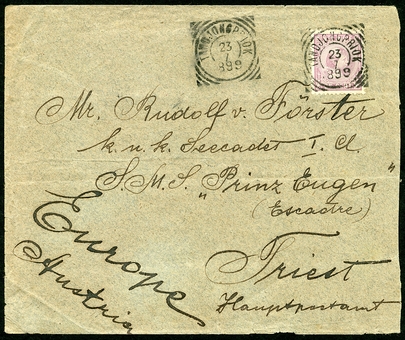 TANDJONGPRIOK
23
7
899
TANDJONGPRIOK
23
7
899
Mr. Rudolf v. Förster
k. u. k. Seecadet I. Cl.
S. M. S. „Prinz Eugen"
(Escadre)
Triest
Hauptpostamt
Europe
Austria